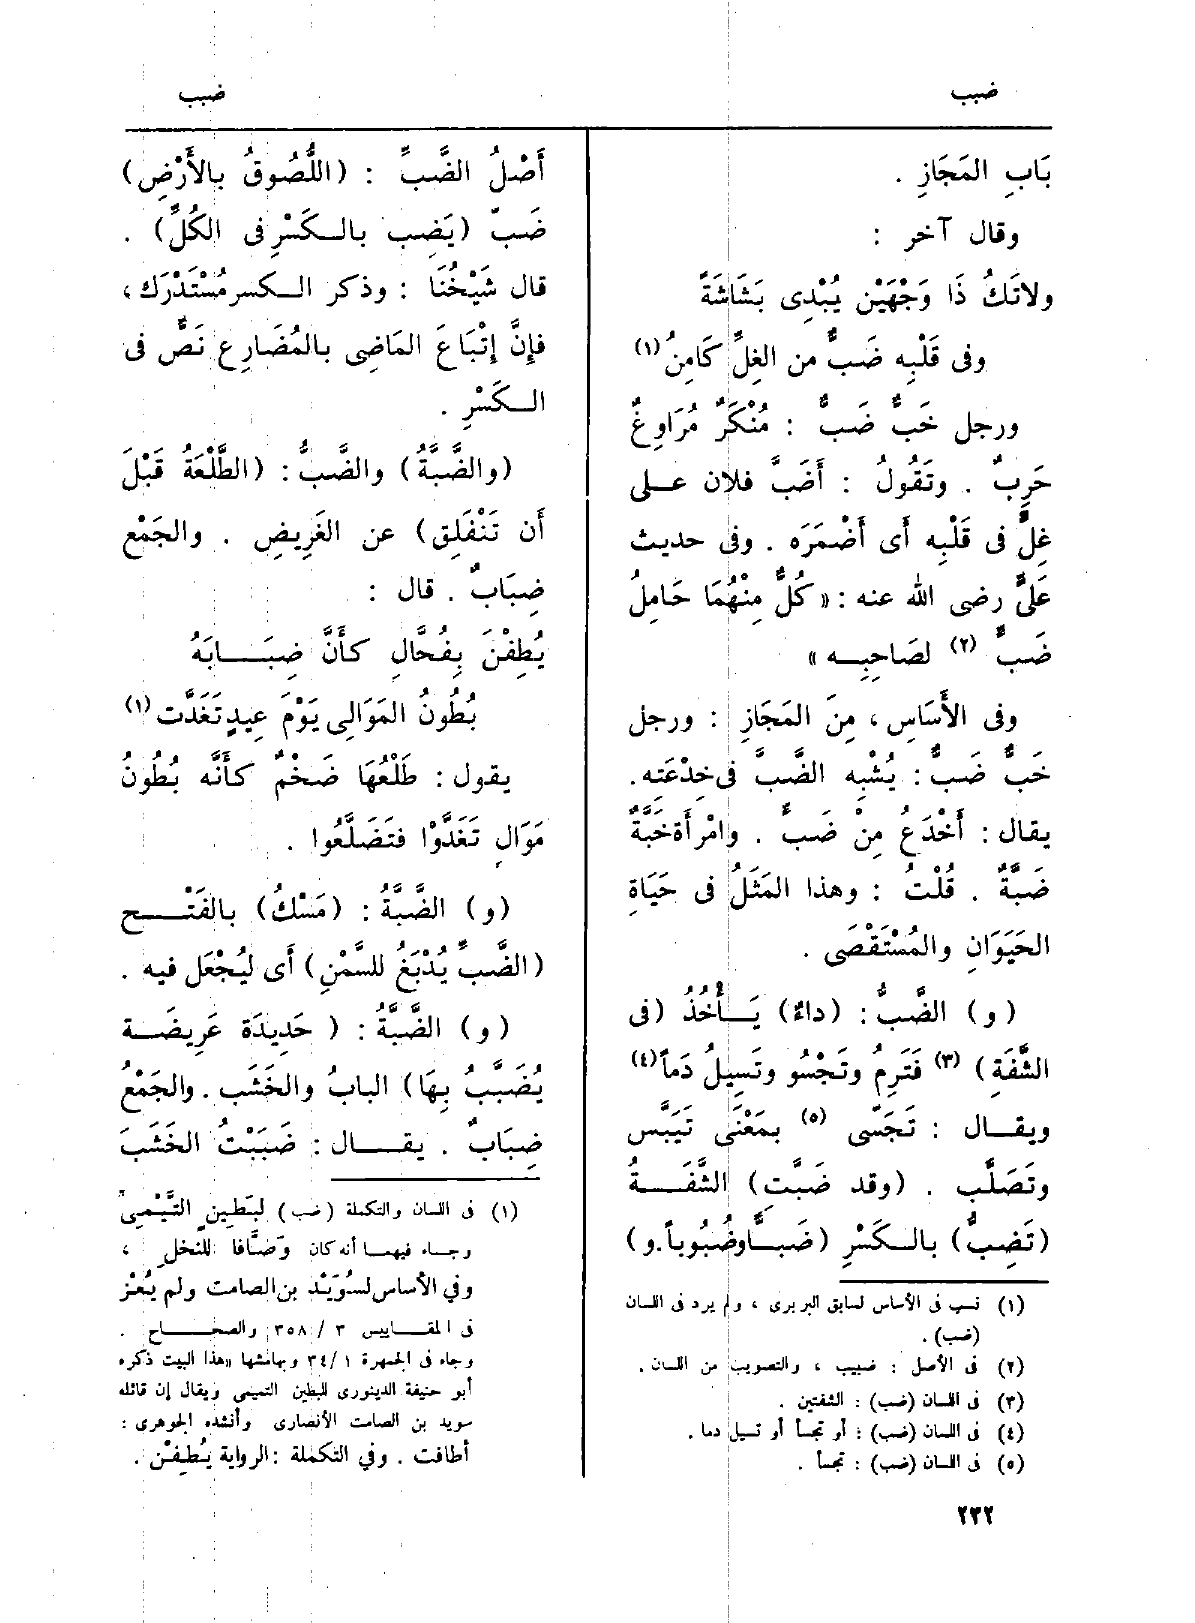 ضبب
ضبب
بَابِ المَجَازِ .
وقال آخر :
ولاتَكُ ذَا وَجْهَيْن يُبْدِى بَشَاشَةً
وفى قَلْبِه ضَبٌّ من الغِلِّ كَامِنُ (١)
ورجل خَبٌّ ضَبٌّ : مُنْكَرٌ مُرَاوِغٌ
حَرِبٌ . وتَقُولُ : أَضَبَّ فلان عـلى
غِلٍّ فى قَلْبِه أى أَضْمَرَه . وفى حديث
عَلىٍّ رضى الله عنه : « كُلٌّ مِنْهُمَا حَامِلُ
ضَبٍّ (٢) لصَاحِبِـه »
وفى الأَسَاسِ ، مِنَ المَجَازِ : ورجل
خَبٌّ ضَبٌّ : يُشْبِه الضَّبَّ فى خِدْعَتِه.
يقال : أَخْدَعُ مِنْ ضَبٍّ . وامْرأَة خَبَّةٌ
ضَبَّةٌ . قُلْتُ : وهذا المَثَلُ فى حَيَاةِ
الحَيَوَانِ والمُسْتَقْصَى .
(و) الضَّبُّ : (داءٌ) يَـأْخُذُ (فى
الشَّفَةِ) (٣) فَتَرِمُ وتَجْسُو وتَسِيلُ دَماً (٤)
ويقـال : تَجَسَّى (٥) بمَعْنَى تَيَبَّس
وتَصَلَّب . (وقد ضَبَّتِ) الشَّفَـةُ
(تَضِبُّ) بالـكَسْرِ (ضَبًّـا وضُبُوباً . و)
(١) نسب فى الأساس لسابق البربرى ، ولم يرد فى اللسان
(ضب) .
(٢) فى الأصل : ضبيب ، والتصويب من اللسان .
(٣) فى اللسان (ضب) : الشفتين .
(٤) فى اللسان (ضب) : أو تجسأ أو تسيل دما .
(٥) فى اللسان (ضب) : تجسأ .
أَصْلُ الضَّبِّ : (اللُّصُوقُ بالأَرْضِ)
ضَبَّ (يَضِب بالـكَسْرِ فى الكُلِّ) .
قال شَيْخُنَا : وذكر الـكسر مُسْتَدْرَك ،
فإِنَّ إِتْبَاعَ المَاضِى بالمُضَارِع نَصٌّ فى
الـكَسْرِ .
(والضَّبَّةُ) والضَّبُّ : (الطَّلْعَةُ قَبْلَ
أَن تَنْفَلِق) عن الغَرِيضِ . والجَمْع
ضِبَابٌ . قال :
يُطِفْنَ بِفُحَّالٍ كأَنَّ ضِبَـابَهُ
بُطُونُ المَوَالِى يَوْمَ عِيدٍ تَغَدَّت (١)
يقول : طَلْعُهَا ضَخْمٌ كأَنَّه بُطُونُ
مَوَالٍ تَغَدَّوْا فتَضَلَّعُوا .
(و) الضَّبَّةُ : (مَسْكُ) بالفَتْـح
(الضَّبِّ يُدْبَغُ للسَّمْنِ) أى ليُجْعَل فيه .
(و) الضَّبَّةُ : (حَدِيدَة عَرِيضَـة
يُضَبَّبُ بِهَا) البابُ والخَشَب . والجَمْعُ
ضِبَابٌ . يقـال : ضَبَبْتُ الخَشَبَ
(١) فى اللسان والتكملة (ضب) لبَطِينٍ التَّيْمِىّ
وجـاء فيهمـا أنه كان وَصَّافا للنخل ،
وفي الأساس لسُوَيْد بن الصامت ولم يُعْزَ
فى المقـاييس ٣ / ٣٥٨ والصحـاح .
وجاء فى الجمهرة ١ /٣٤ وبهامشها «هذا البيت ذكره
أبو حنيفة الدينورى للبطين التميمى ويقال إن قائله
سويد بن الصامت الأنصارى وأنشده الجوهرى :
أطافت . وفي التكملة : الرواية يُطِفْن .
٢٣٢